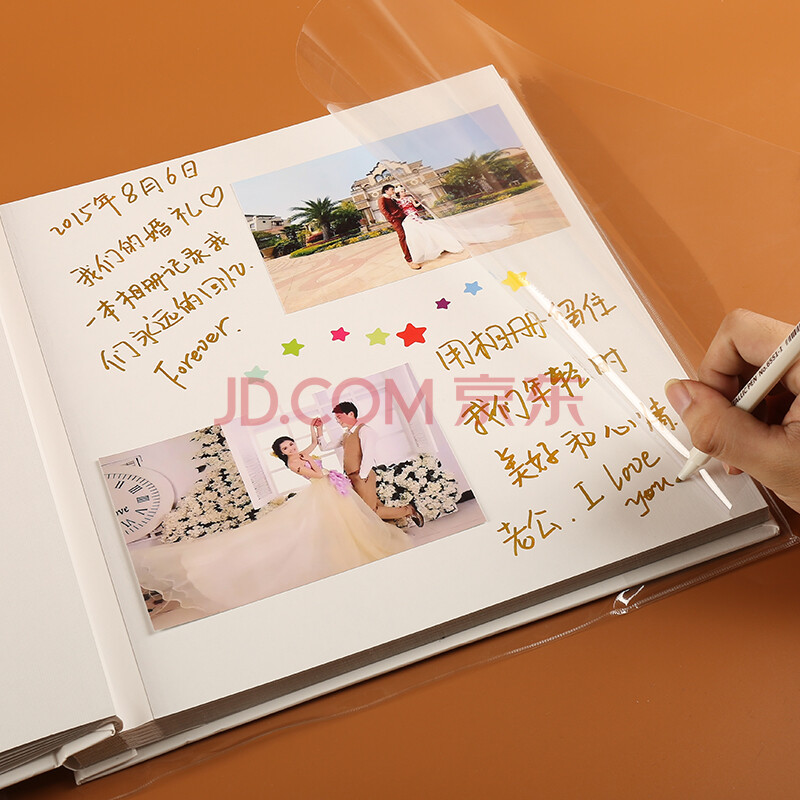 2015年8月6日
我们的婚礼♡
一本相册记录我
们永远的回忆.
Forever.
用相册留住
我们年轻时
美好和心情
老公. I love
you
JD.COM 京东